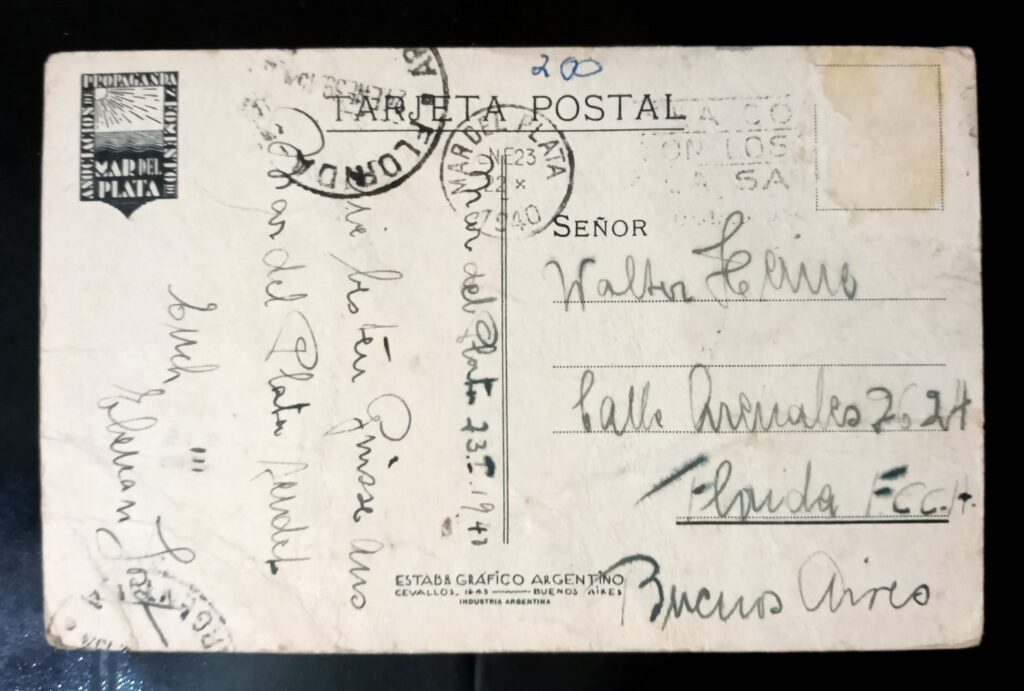 ASOCIACION DE PROPAGANDA Y FOMENTO DE
MAR DEL
PLATA
200
TARJETA POSTAL
FLORIDA
MAR DEL PLATA
ENE23
22 X
1940
SEÑOR
Walter
Calle Arenales 2624
Florida F.C.C.A.
Buenos Aires
Mar del Plata 23.I.1940
Die besten Grüsse aus
Mar del Plata sendet
Euch
ESTABᴱ GRÁFICO ARGENTINO
CEVALLOS, 1645 — BUENOS AIRES
INDUSTRIA ARGENTINA